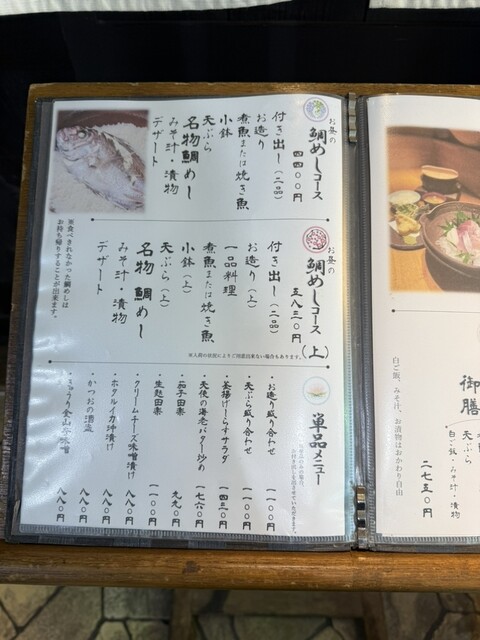 お昼の
鯛めしコース
四四〇〇円
付き出し(二品)
お造り
煮魚または焼き魚
小鉢
天ぷら
名物鯛めし
みそ汁・漬物
デザート
お昼の
鯛めしコース(上)
五八三〇円
付き出し(二品)
お造り(上)
一品料理
煮魚または焼き魚
小鉢(上)
天ぷら(上)
名物鯛めし
みそ汁・漬物
デザート
※食べきれなかった鯛めしは
お持ち帰りすることが出来ます。
単品メニュー
・お造り盛り合わせ 一一〇〇円
・天ぷら盛り合わせ 一一〇〇円
・釜揚げしらすサラダ 一四三〇円
・天使の海老バター炒め 一七六〇円
・茄子田楽 九九〇円
・生麩田楽 一一〇〇円
・クリームチーズ味噌漬け 八八〇円
・ホタルイカ沖漬け 八八〇円
・かつおの酒盗 八八〇円
・きゅうり金山寺味噌 八八〇円
御膳
天ぷら
白ご飯・みそ汁・漬物
二七五〇円
白ご飯、みそ汁、お漬物はおかわり自由